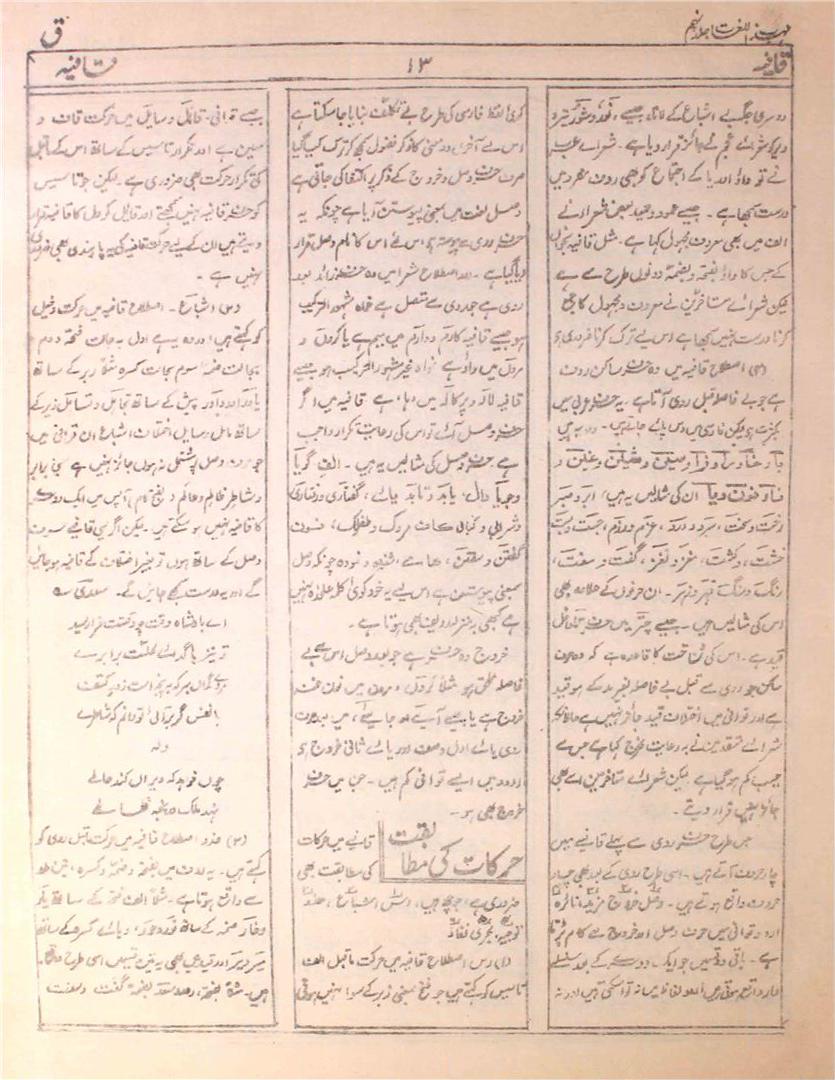 مہذب اللغت جلد نہم
ق
قافیہ
۱۳
قافیہ
دوسری جگہ بے اشباع کے لانا، جیسے،
وغیرہ کو شعرائے عجم نے جائز قرار دیا ہے۔ شعرائے عرب
نے تو واؤ اور یا کے اجتماع کو بھی ردف میں
درست سمجھا ہے۔ جیسے عمود و حمید بعض شعراء نے
الف میں بھی معروف و مجہول کہا ہے۔ مثل قافیہ
کے جس کا واؤ بفتحہ و بضمہ دونوں طرح سے ہے
لیکن شعرائے متاخرین نے معروف و مجہول کا جمع
کرنا درست نہیں سمجھا ہے اس لیے ترک کرنا ضروری ہے
(۴) اصطلاح قافیہ میں وہ حرف ساکن
ہے جو بے فاصلہ قبل روی آتا ہے۔ یہ حرف عربی میں
بکثرت ہیں لیکن فارسی میں دس پائے جاتے ہیں۔ وہ یہ ہیں
با و خا و را و زا و سین و شین و غین و
فا و نون و ہا ان کی مثالیں یہ ہیں، ابر و صبر
رخت و بخت، سرد و درد، عزم و رزم،
نغز، گفت و
رنگ و سنگ ان حرفوں کے علاوہ بھی
اس کی مثالیں ہیں۔ جیسے
قید ہے۔ اس کی شناخت کا قاعدہ ہے کہ وہ حرف
ساکن جو روی سے قبل بے فاصلہ بغیر مد کے ہو قید
ہے اور قوافی میں اختلاف قید جائز نہیں ہے حالانکہ
شعرائے متقدمین نے بہ رعایت مخرج کہا ہے جس سے
عیب کم ہو گیا ہے لیکن شعرائے متاخرین اسے بھی
جائز نہیں قرار دیتے۔
جس طرح حرف روی سے پہلے قافیے میں
چار حروف آتے ہیں۔ اسی طرح روی کے بعد بھی چار
حروف واقع ہوتے ہیں۔ وصل خروج مزید، نائرہ
اردو قوافی میں حرف وصل اور خروج سے کام پڑتا
ہے۔ باقی دو قسمیں جو ایک دوسرے کے بعد سلسلے
وار واقع ہوتی ہیں اردو الفاظ میں نہ تو آسکتی ہیں اور نہ
کوئی لفظ فارسی کی طرح بے تکلف بنایا جا سکتا ہے
اس لیے آخری دو حرفوں کا ذکر فضول سمجھ کر ترک کیا گیا
صرف حرف وصل و خروج کے ذکر پر اکتفا کی جاتی ہے
وصل لغت میں بمعنی پیوستن آیا ہے چونکہ یہ
حرف روی سے پیوستہ ہے اس لئے اس کا نام وصل قرار
دیا گیا ہے۔ اور اصطلاح شعرا میں وہ حرف زائد بعد
روی ہے جو روی سے متصل ہے خواہ مشہور الترکیب
ہو جیسے قافیہ کارم و دارم میں میم ہے یا کردن و
مردن میں ہے خواہ غیر مشہور الترکیب ہو جیسے
قافیہ لالہ و پرکالہ میں 'ہا' ہے قافیہ میں اگر
حرف وصل آئے تو اس کی رعایت تکرار واجب
ہے۔ حرف وصل کی مثالیں یہ ہیں۔ الف گویا
و جویا دال، یابد و تابد یائے، گفتاری و رفتاری
و شرابی و کبابی کاف مردک و طفلک، نون
گفتن و سفتن، ہائے، شنیدہ و نمودہ چونکہ وصل
بمعنی پیوستن ہے اس لیے یہ خود کوئی کلمہ علیحدہ نہیں
ہے کبھی بمنزلہ ردیف بھی ہوتا ہے۔
خروج وہ حرف ہے جو بعد وصل اس سے بے
فاصلہ ملحق ہو مثلاً کردن و مردن میں نون
خروج ہے یا جیسے آیئے اور جایئے، میں الف
روی یائے اول وصل اور یائے ثانی خروج ہے
اردو میں ایسے قوافی کم ہیں۔ جن میں حرف
خروج بھی ہو۔
حرکات کی مطابقت
قافیے میں حرکات
کی مطابقت بھی
ضروری ہے، جو چھ ہیں، رس، اشباع، حذو
توجیہ، مجریٰ نفاذ
(۱) رس اصطلاح قافیہ میں حرکت ماقبل الف
تاسیس کو کہتے ہیں جو فتح یعنی زبر کے سوا نہیں ہوتی
جیسے قوافی۔ قابل و سایل میں حرکت قاف و
سین ہے اور تکرار تاسیس کے ساتھ اس کے ماقبل
کی تکرار حرکت بھی ضروری ہے۔ لیکن جو تاسیس
کو حرف قافیہ نہیں سمجھتے اور قابل کو دل کا قافیہ قرار
دیتے ہیں ان کے لیے حرکت قافیہ کی یہ پابندی بھی ضروری
نہیں ہے۔
(۲) اشباع۔ اصطلاح قافیہ میں حرکت دخیل
کو کہتے ہیں؛ اور وہ یہ ہے اول بہ حالت فتحہ دوم
بحالت ضمہ سوم بحالت کسرہ مثلاً زبر کے ساتھ
یاور اور داور پیش کے ساتھ تجاہل و تساہل زیر کے
ساتھ مایل و سایل، اختلاف اشباع ان قوافی میں
جو حرف وصل پر مشتمل نہ ہوں جائز نہیں ہے
و شاطر ظالم و عالم (بفتح لام) آپس میں ایک دوسرے
کا قافیہ نہیں ہو سکتے ہیں۔ لیکن اگر یہی قافیے حرف
وصل کے ساتھ ہوں تو بغیر اختلاف کے قافیہ ہو جائیں
گے اور یہ درست سمجھے جائیں گے۔ سعدی ؎
اے بادشاہ وقت چو وقتت فرا رسد
تو نیز با گدائے محلت برابرے
مردے گماں مبر کہ بہ پنجہ است و زور کتف
با نفس اگر بر آئی تو دانم کہ شاطرے
ولہ
چوں خواہد کہ ویراں کند عالمے
نہد ملک در پنجہ ظالمے
(۳) حذو اصطلاح قافیہ میں حرکت ماقبل ردف کو
کہتے ہیں۔ یہ ردف میں بفتحہ و ضمہ و کسرہ، تین طور
سے واقع ہوتا ہے۔ مثلاً الف فتحہ کے ساتھ
ضمہ کے ساتھ دیائے کسرہ کے ساتھ
اور قید میں بھی یہ تین قسمیں اسی طرح واقع
ہیں۔ مثلاً بفتحہ، رعد و سعد بضمہ گفت و سفت